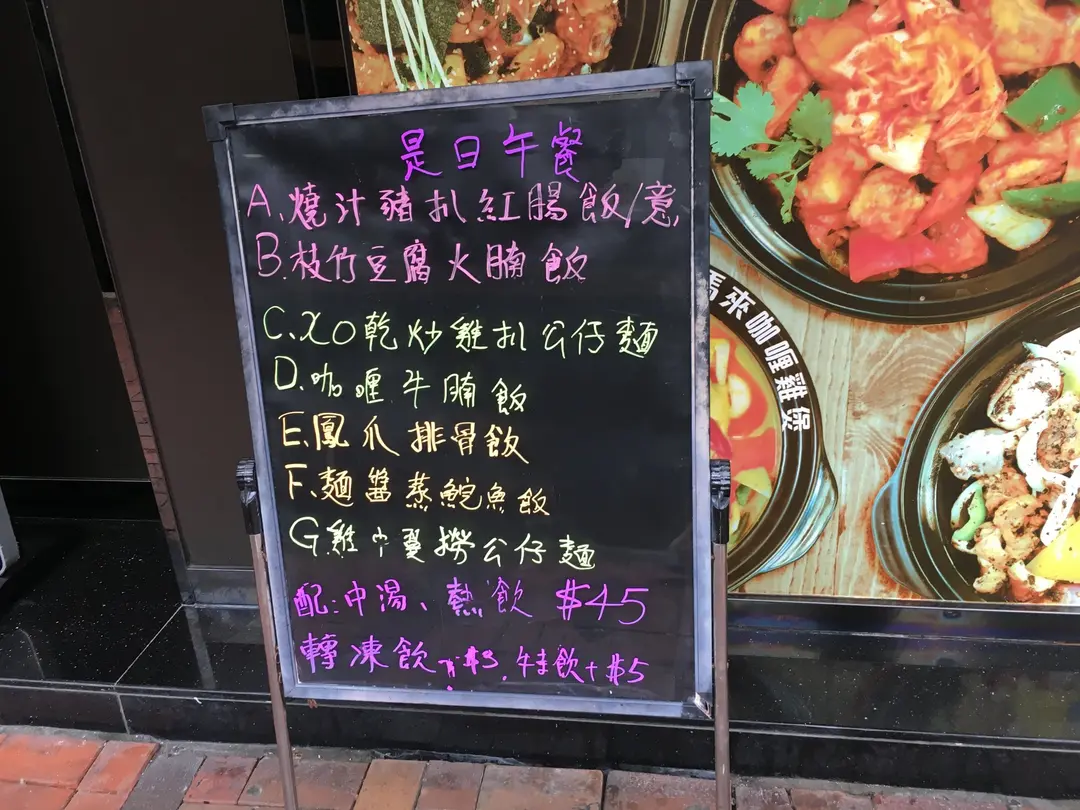 是日午餐
A.燒汁豬扒紅腸飯/意
B.枝竹豆腐火腩飯
C.XO乾炒雞扒公仔麵
D.咖喱牛腩飯
E.鳳爪排骨飯
F.麵醬蒸鯇魚飯
G.雞中翼撈公仔麵
配:中湯、熱飲 $45
轉凍飲+$3.特飲+$5
馬來咖喱雞煲